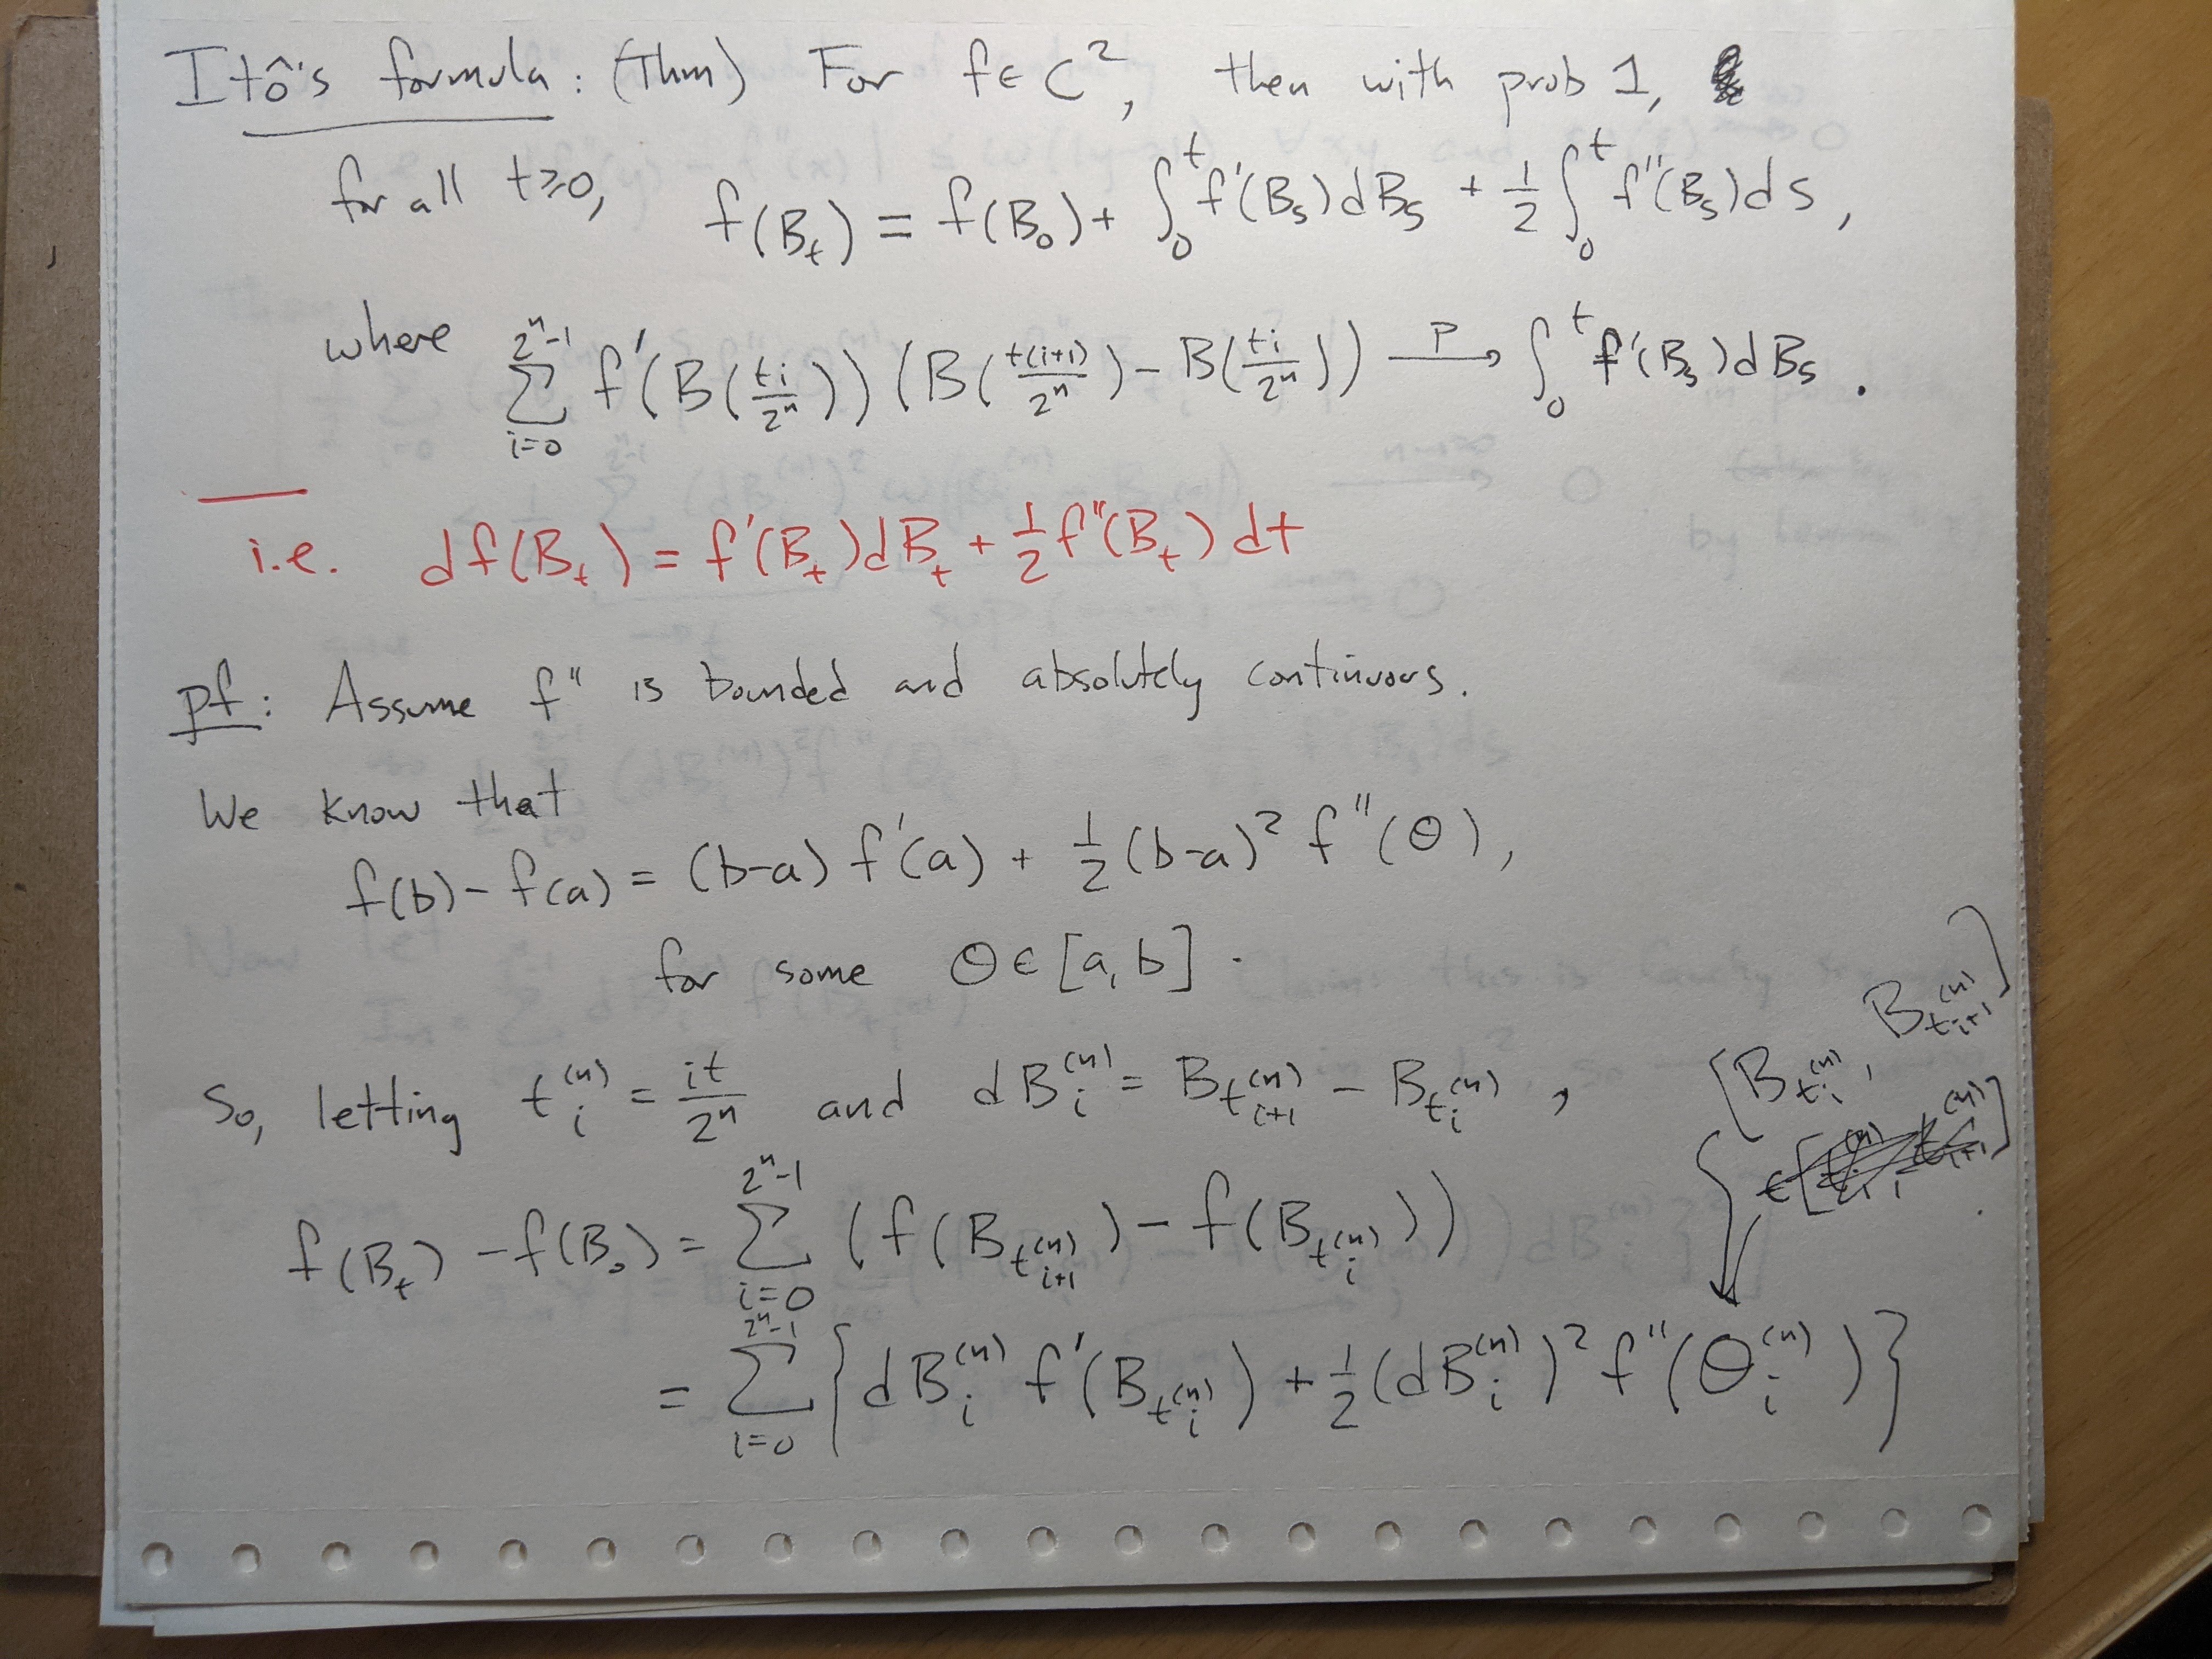 Itô's formula: (Thm) For f ∈ C², then with prob 1,
for all t≥0, f(B_t) = f(B_0) + ∫_0^t f'(B_s)dB_s + 1/2 ∫_0^t f''(B_s)ds,
where ∑_{i=0}^{2^n-1} f'(B(ti/2^n)) (B(t(i+1)/2^n) - B(ti/2^n)) →^P ∫_0^t f'(B_s)dB_s.
i.e. df(B_t) = f'(B_t)dB_t + 1/2 f''(B_t)dt
pf: Assume f'' is bounded and absolutely continuous.
We know that
f(b) - f(a) = (b-a) f'(a) + 1/2 (b-a)² f''(θ),
for some θ ∈ [a,b].
So, letting t_i^{(n)} = it/2^n and dB_i^{(n)} = B_{t_{i+1}^{(n)}} - B_{t_i^{(n)}},
[B_{t_i^{(n)}}, B_{t_{i+1}^{(n)}}]
f(B_t) - f(B_0) = ∑_{i=0}^{2^n-1} (f(B_{t_{i+1}^{(n)}}) - f(B_{t_i^{(n)}}))
= ∑_{i=0}^{2^n-1} {dB_i^{(n)} f'(B_{t_i^{(n)}}) + 1/2 (dB_i^{(n)})² f''(θ_i^{(n)})}